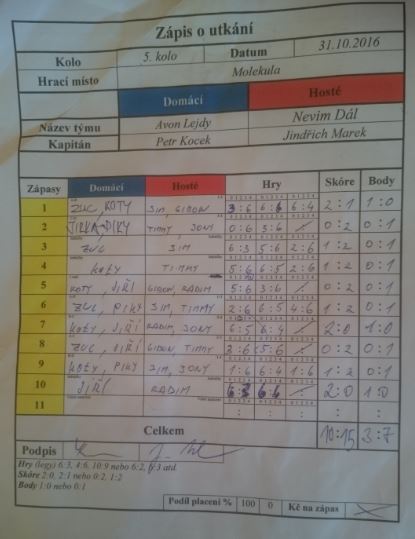 Zápis o utkání
Kolo 5. kolo Datum 31.10.2016
Hrací místo Molekula
Domácí Hosté
Název týmu Avon Lejdy Nevim Dál
Kapitán Petr Kocek Jindřich Marek
Zápasy Domácí Hosté Hry Skóre Body
1 ZUC, KOTY SIM, GIBON 6:4 2:1 1:0
2 JIRKA, PIKY TIMMY JONY 0:6 3:6 0:2 0:1
3 ZUC SIM 6:3 5:6 2:6 1:2 0:1
4 KOTY TIMMY 5:6 6:5 2:6 1:2 0:1
5 KOTY, JIŘÍ GIBON, RADIM 5:6 3:6 0:2 0:1
6 ZUC, PIKY SIM, TIMMY 2:6 6:5 4:6 1:2 0:1
7 KOTY, JIŘÍ RADIM, JONY 6:5 6:4 2:0 1:0
8 ZUC, JIŘÍ GIBON, TIMMY 5:6 0:2 0:1
9 KOTY, PIKY SIM, JONY 1:6 6:4 1:6 1:2 0:1
10 JIŘÍ RADIM 2:0 1:0
11 : : : : :
Celkem 10:15 3:7
Podpis
Hry (legy) 6:3, 4:6, 10:9 nebo 6:2, 6:3 atd.
Skóre 2:0, 2:1 nebo 0:2, 1:2
Body 1:0 nebo 0:1
Podíl placení % 100 0 Kč na zápas